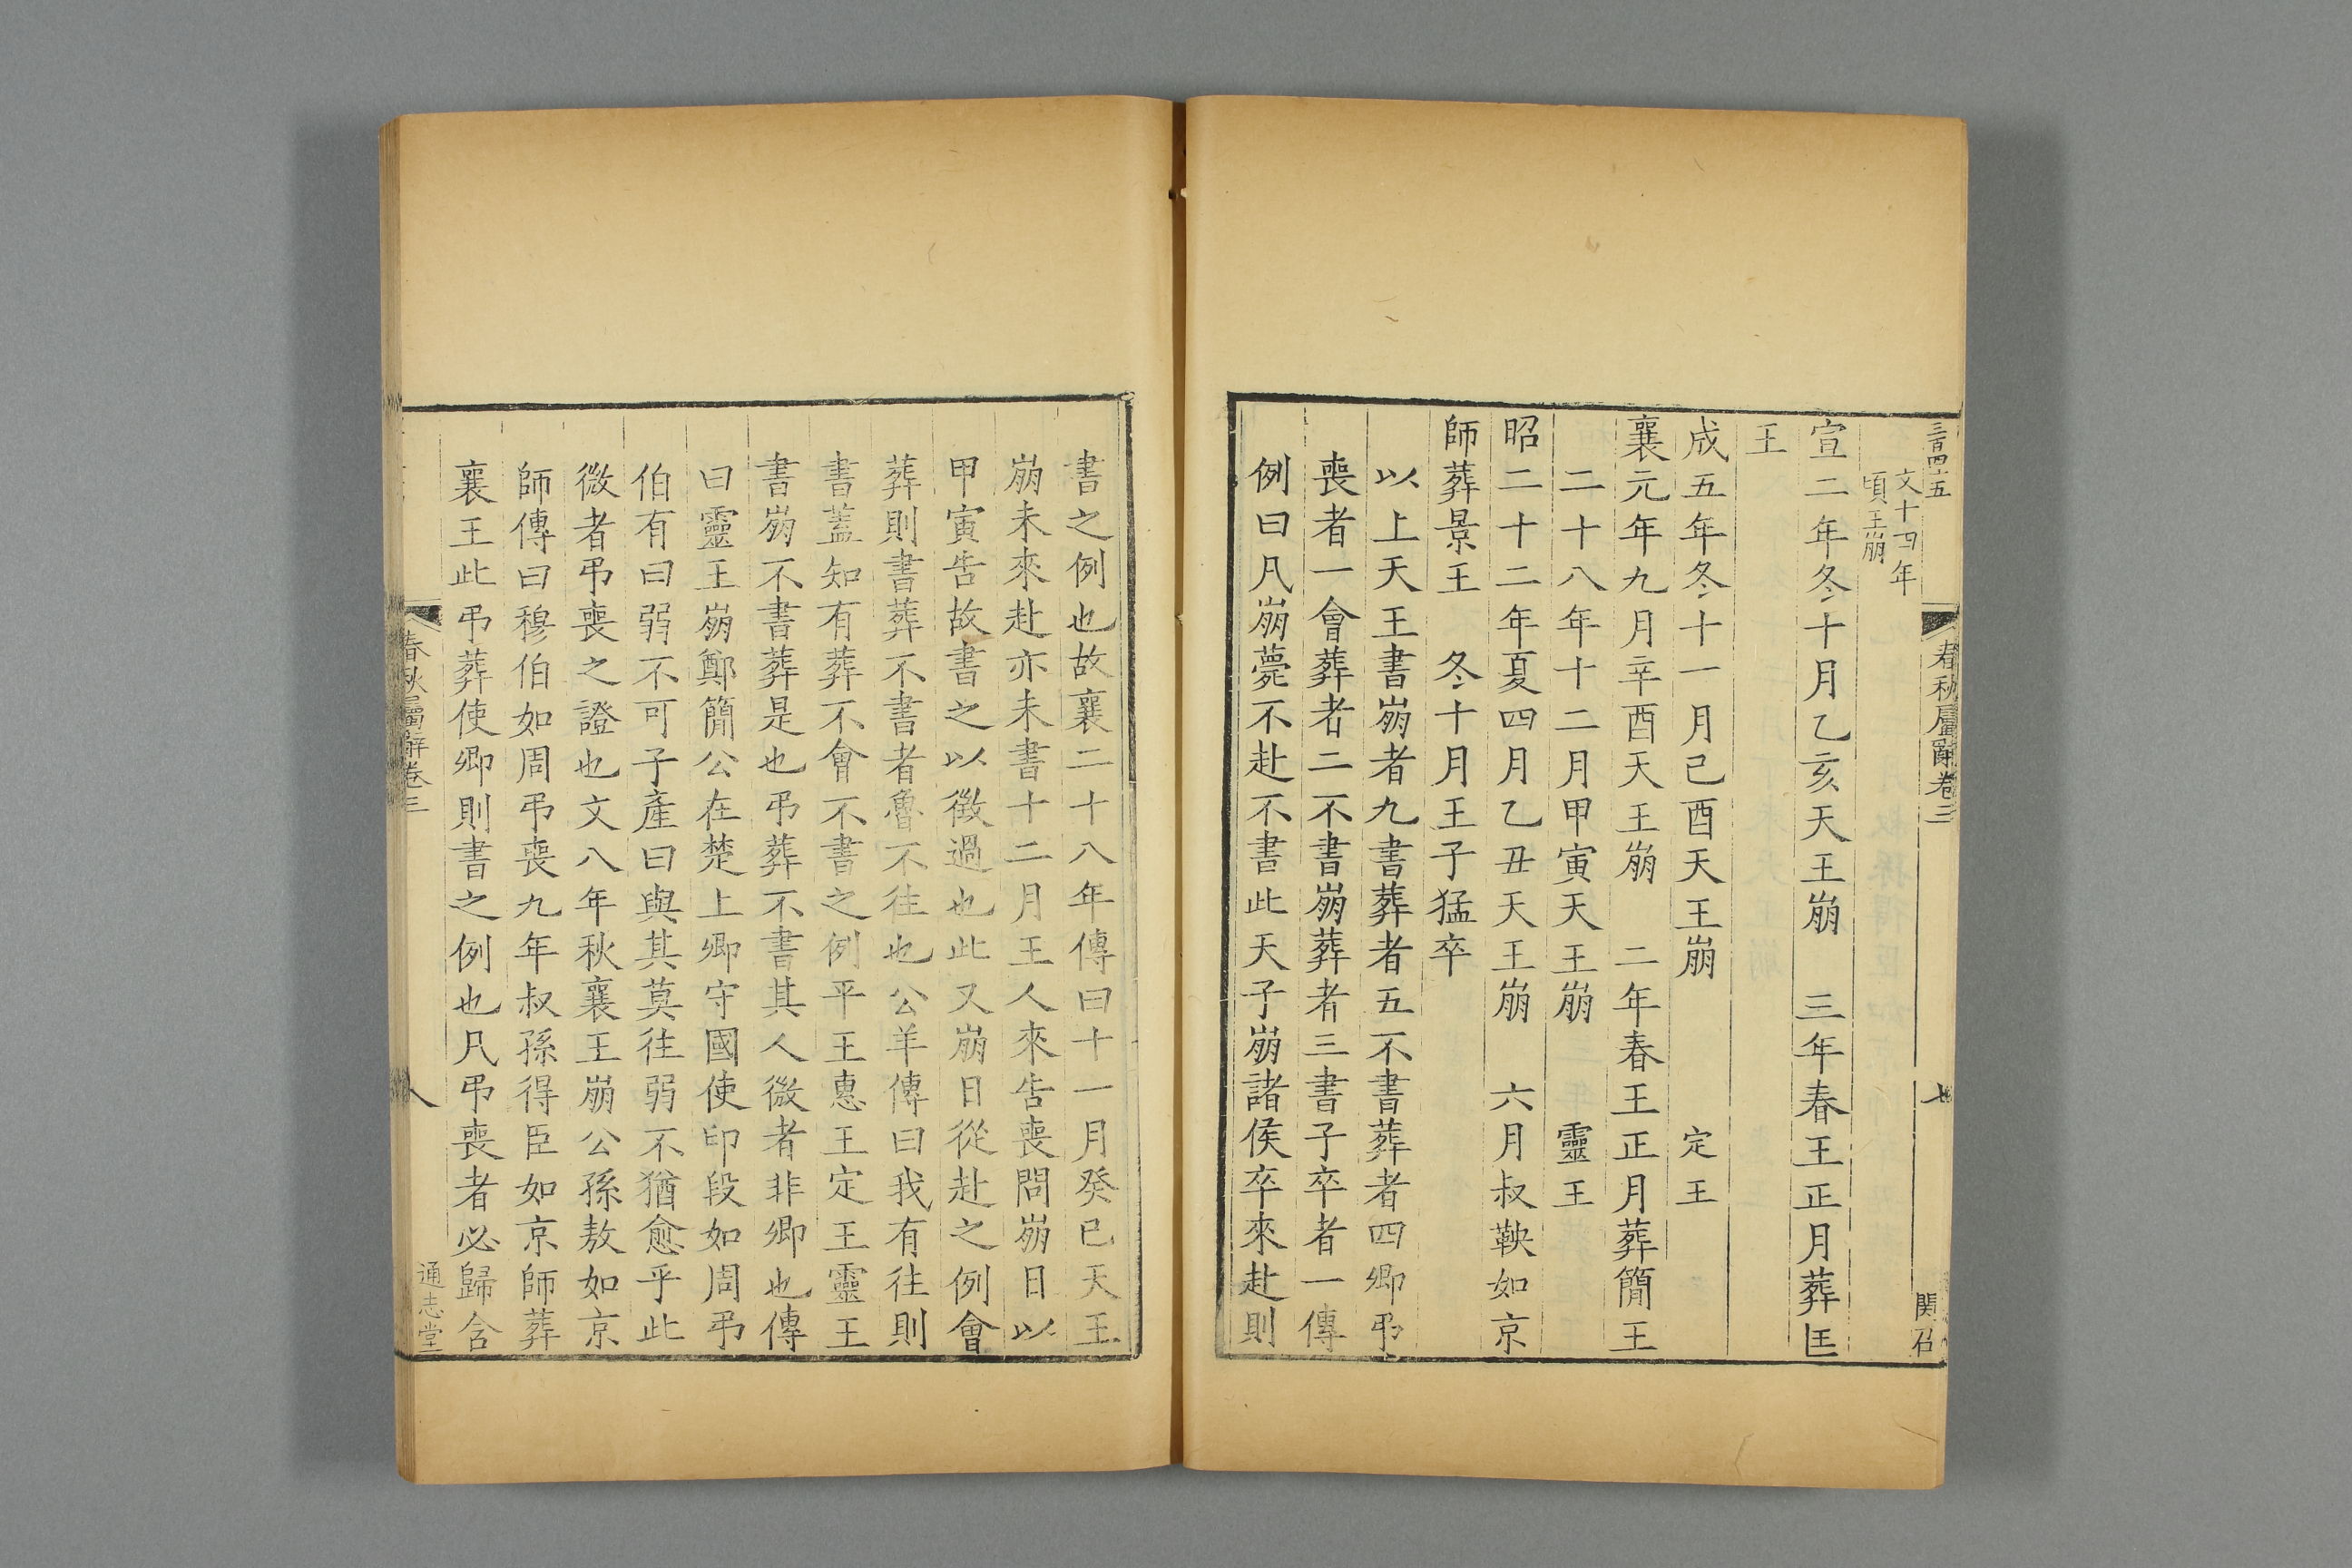 三百四十五
春秋屬辭卷三
七
関召
文十四年
頃王崩
宣二年冬十月乙亥天王崩　三年春王正月葬匡
王
成五年冬十一月己酉天王崩　定王
襄元年九月辛酉天王崩　二年春王正月葬簡王
二十八年十二月甲寅天王崩　靈王
昭二十二年夏四月乙丑天王崩　六月叔鞅如京
師葬景王　冬十月王子猛卒
以上天王書崩者九書葬者五不書葬者四卿弔
喪者一會葬者二不書崩葬者三書子卒者一傳
例曰凡崩薨不赴不書此天子崩諸侯卒來赴則
書之例也故襄二十八年傳曰十一月癸巳天王
崩未來赴亦未書十二月王人來告喪問崩日以
甲寅告故書之以徵過也此又崩日從赴之例會
葬則書葬不書者魯不往也公羊傳曰我有往則
書蓋知有葬不會不書之例平王惠王定王靈王
書崩不書葬是也弔葬不書其人微者非卿也傳
曰靈王崩鄭簡公在楚上卿守國使印段如周弔
伯有曰弱不可子產曰與其莫往弱不猶愈乎此
微者弔喪之證也文八年秋襄王崩公孫敖如京
師傳曰穆伯如周弔喪九年叔孫得臣如京師葬
襄王此弔葬使卿則書之例也凡弔喪者必歸含
春秋屬辭卷三
八
通志堂